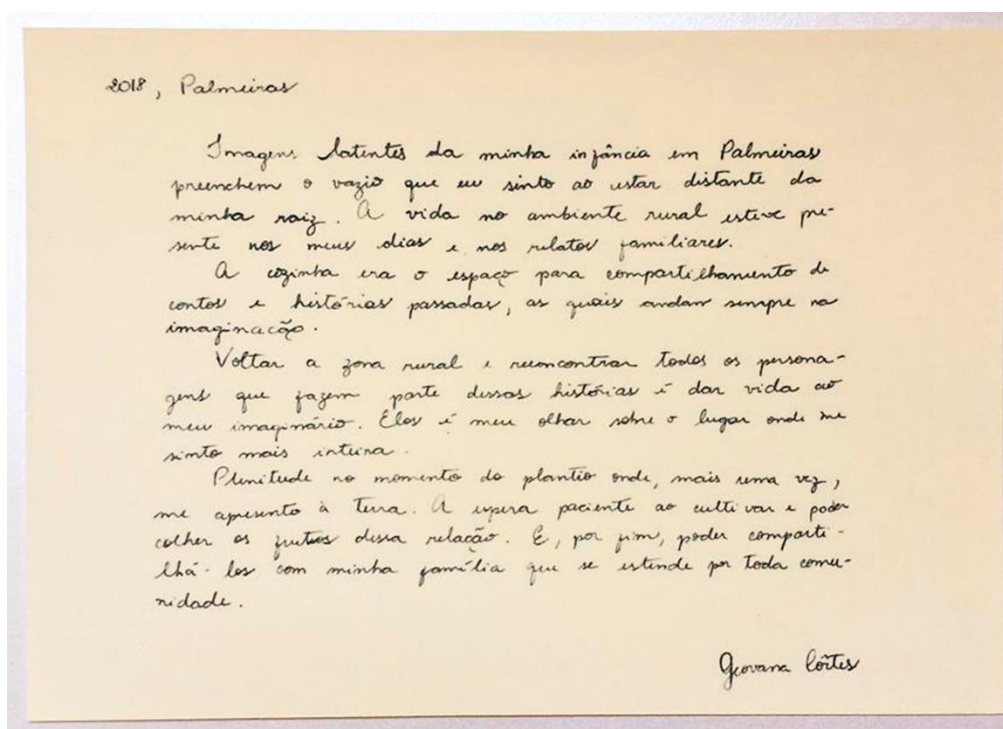 2018, Palmeiras
Imagens latentes da minha infância em Palmeiras
preenchem o vazio que eu sinto ao estar distante da
minha raiz. A vida no ambiente rural esteve pre-
sente nos meus dias e nos relatos familiares.
A cozinha era o espaço para compartilhamento de
contos e histórias passadas, as quais andam sempre na
imaginação.
Voltar a zona rural e reencontrar todos os persona-
gens que fazem parte dessas histórias é dar vida ao
meu imaginário. Elos é meu olhar sobre o lugar onde me
sinto mais inteira.
Plenitude no momento do plantio onde, mais uma vez,
me apresento à terra. A espera paciente ao cultivar e poder
colher os frutos dessa relação. E, por fim, poder comparti-
lhá-los com minha família que se estende por toda comu-
nidade.
Geovana Côrtes